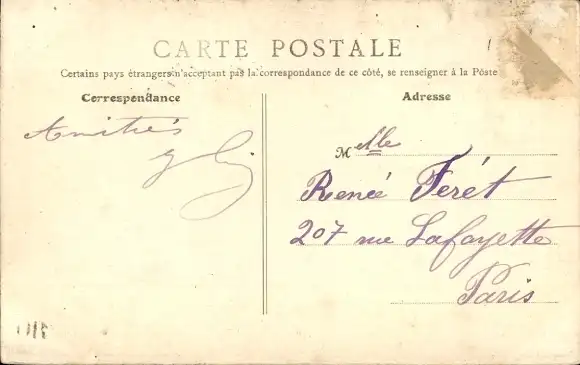 CARTE POSTALE
Certains pays étrangers n'acceptant pas la correspondance de ce côté, se renseigner à la Poste
Correspondance
Amitiés
Adresse
M elle
Renée Ferét
207 rue Lafayette
Paris